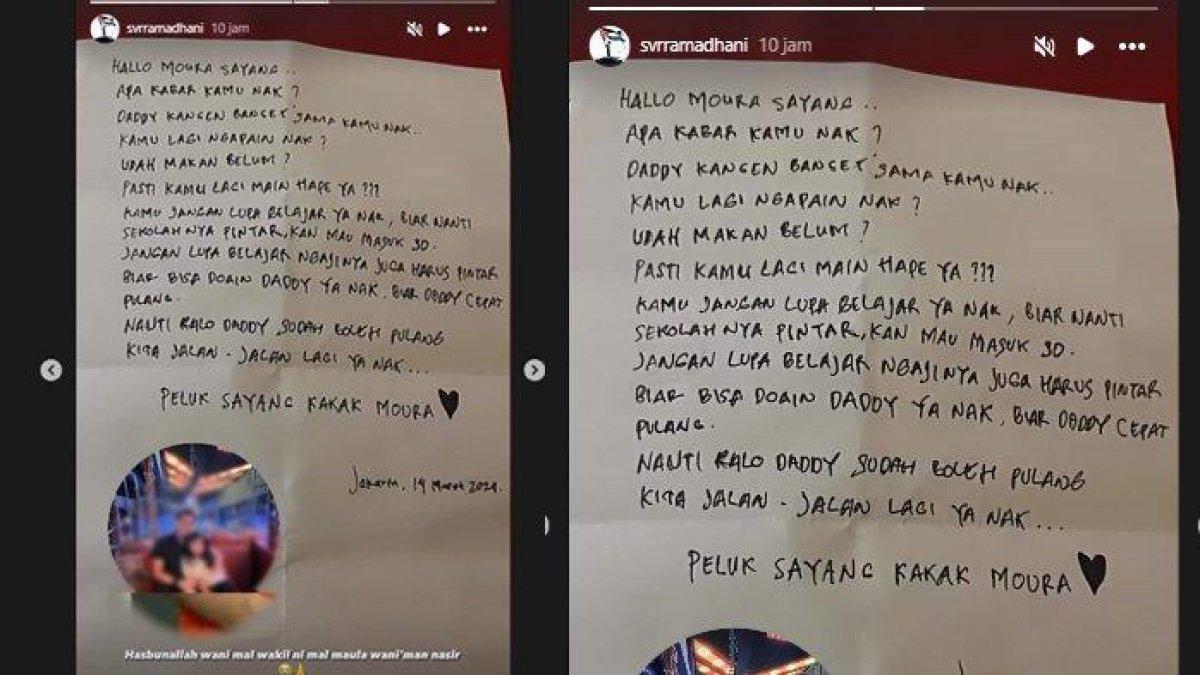 svrramadhani 10 jam
HALLO MOURA SAYANG ..
APA KABAR KAMU NAK ?
DADDY KANGEN BANGET SAMA KAMU NAK..
KAMU LAGI NGAPAIN NAK ?
UDAH MAKAN BELUM ?
PASTI KAMU LAGI MAIN HAPE YA ???
KAMU JANGAN LUPA BELAJAR YA NAK, BIAR NANTI
SEKOLAHNYA PINTAR, KAN MAU MASUK SD.
JANGAN LUPA BELAJAR NGAJINYA JUGA HARUS PINTAR
BIAR BISA DOAIN DADDY YA NAK, BIAR DADDY CEPAT
PULANG.
NANTI KALO DADDY SUDAH BOLEH PULANG
KITA JALAN - JALAN LAGI YA NAK...
PELUK SAYANG KAKAK MOURA
Jakarta, 14 Maret 2024.
Hasbunallah wani mal wakil ni mal maula wani'man nasir
svrramadhani 10 jam
HALLO MOURA SAYANG ..
APA KABAR KAMU NAK ?
DADDY KANGEN BANGET SAMA KAMU NAK..
KAMU LAGI NGAPAIN NAK ?
UDAH MAKAN BELUM ?
PASTI KAMU LAGI MAIN HAPE YA ???
KAMU JANGAN LUPA BELAJAR YA NAK, BIAR NANTI
SEKOLAHNYA PINTAR, KAN MAU MASUK SD.
JANGAN LUPA BELAJAR NGAJINYA JUGA HARUS PINTAR
BIAR BISA DOAIN DADDY YA NAK, BIAR DADDY CEPAT
PULANG.
NANTI KALO DADDY SUDAH BOLEH PULANG
KITA JALAN - JALAN LAGI YA NAK...
PELUK SAYANG KAKAK MOURA